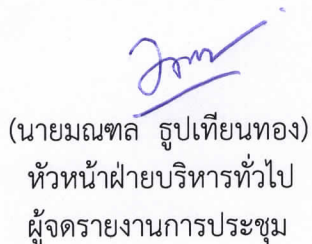 (นายมณฑล ธูปเทียนทอง)
หัวหน้าฝ่ายบริหารทั่วไป
ผู้จดรายงานการประชุม